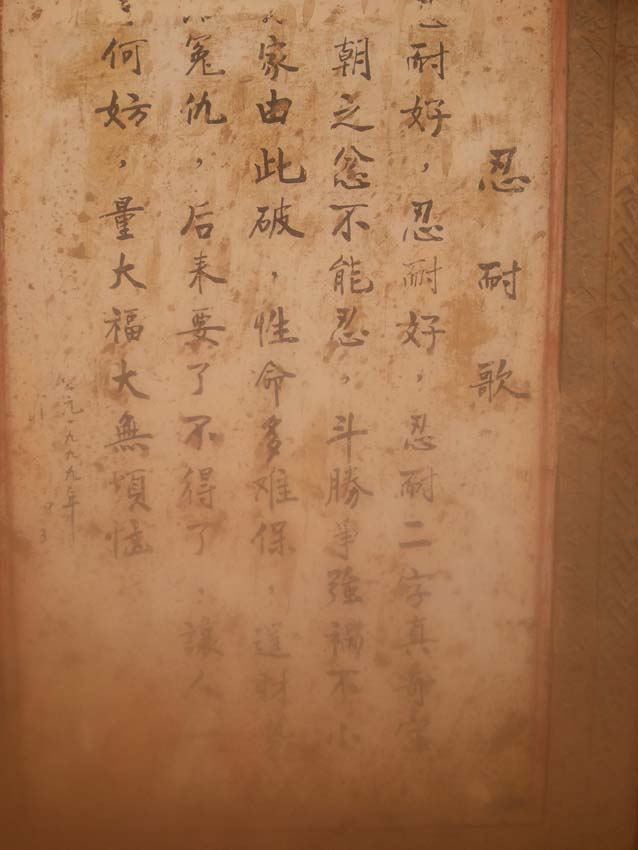 忍耐歌
耐好，忍耐好，忍耐二字真奇宝
朝之忿不能忍，斗勝爭強禍不小
家由此破，性命多难保，逞財势
冤仇，后来要了不得了，讓人
何妨，量大福大無煩恼
公元一九九九年